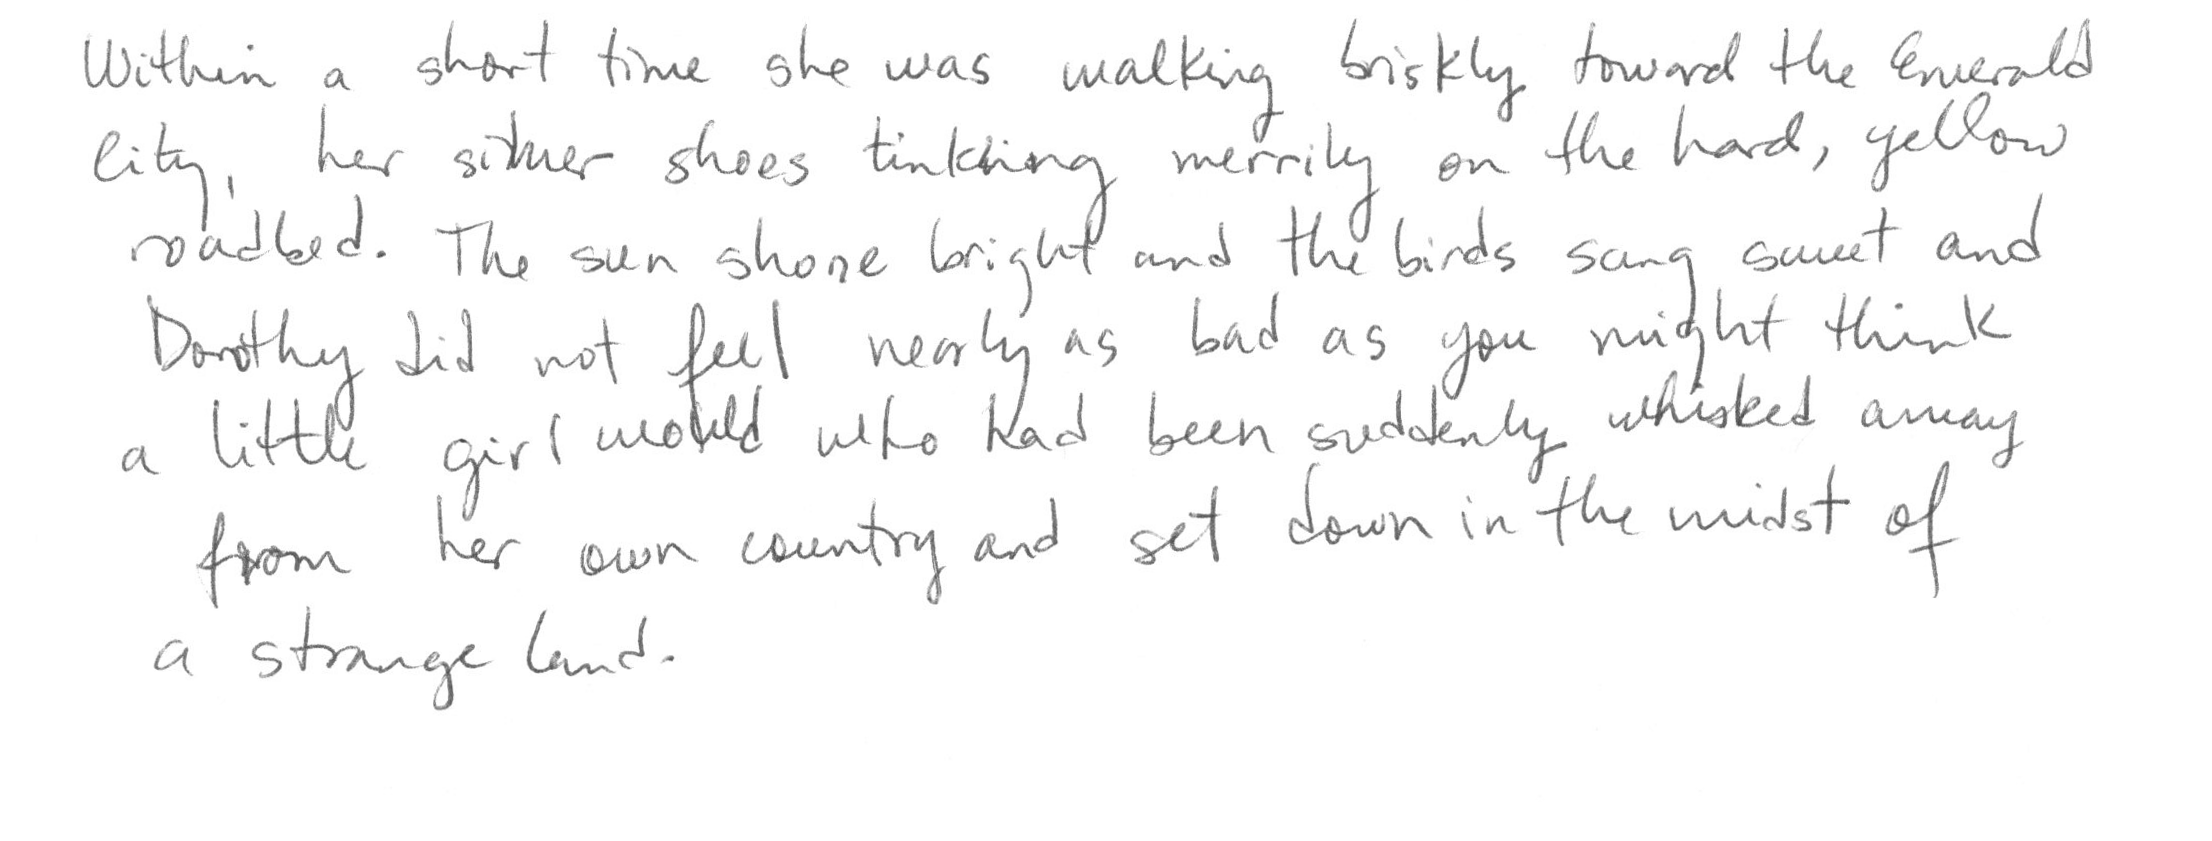 Within a short time she was walking briskly toward the Emerald
City, her silver shoes tinkling merrily on the hard, yellow
roadbed. The sun shone bright and the birds sang sweet and
Dorothy did not feel nearly as bad as you might think
a little girl would who had been suddenly whisked away
from her own country and set down in the midst of
a strange land.